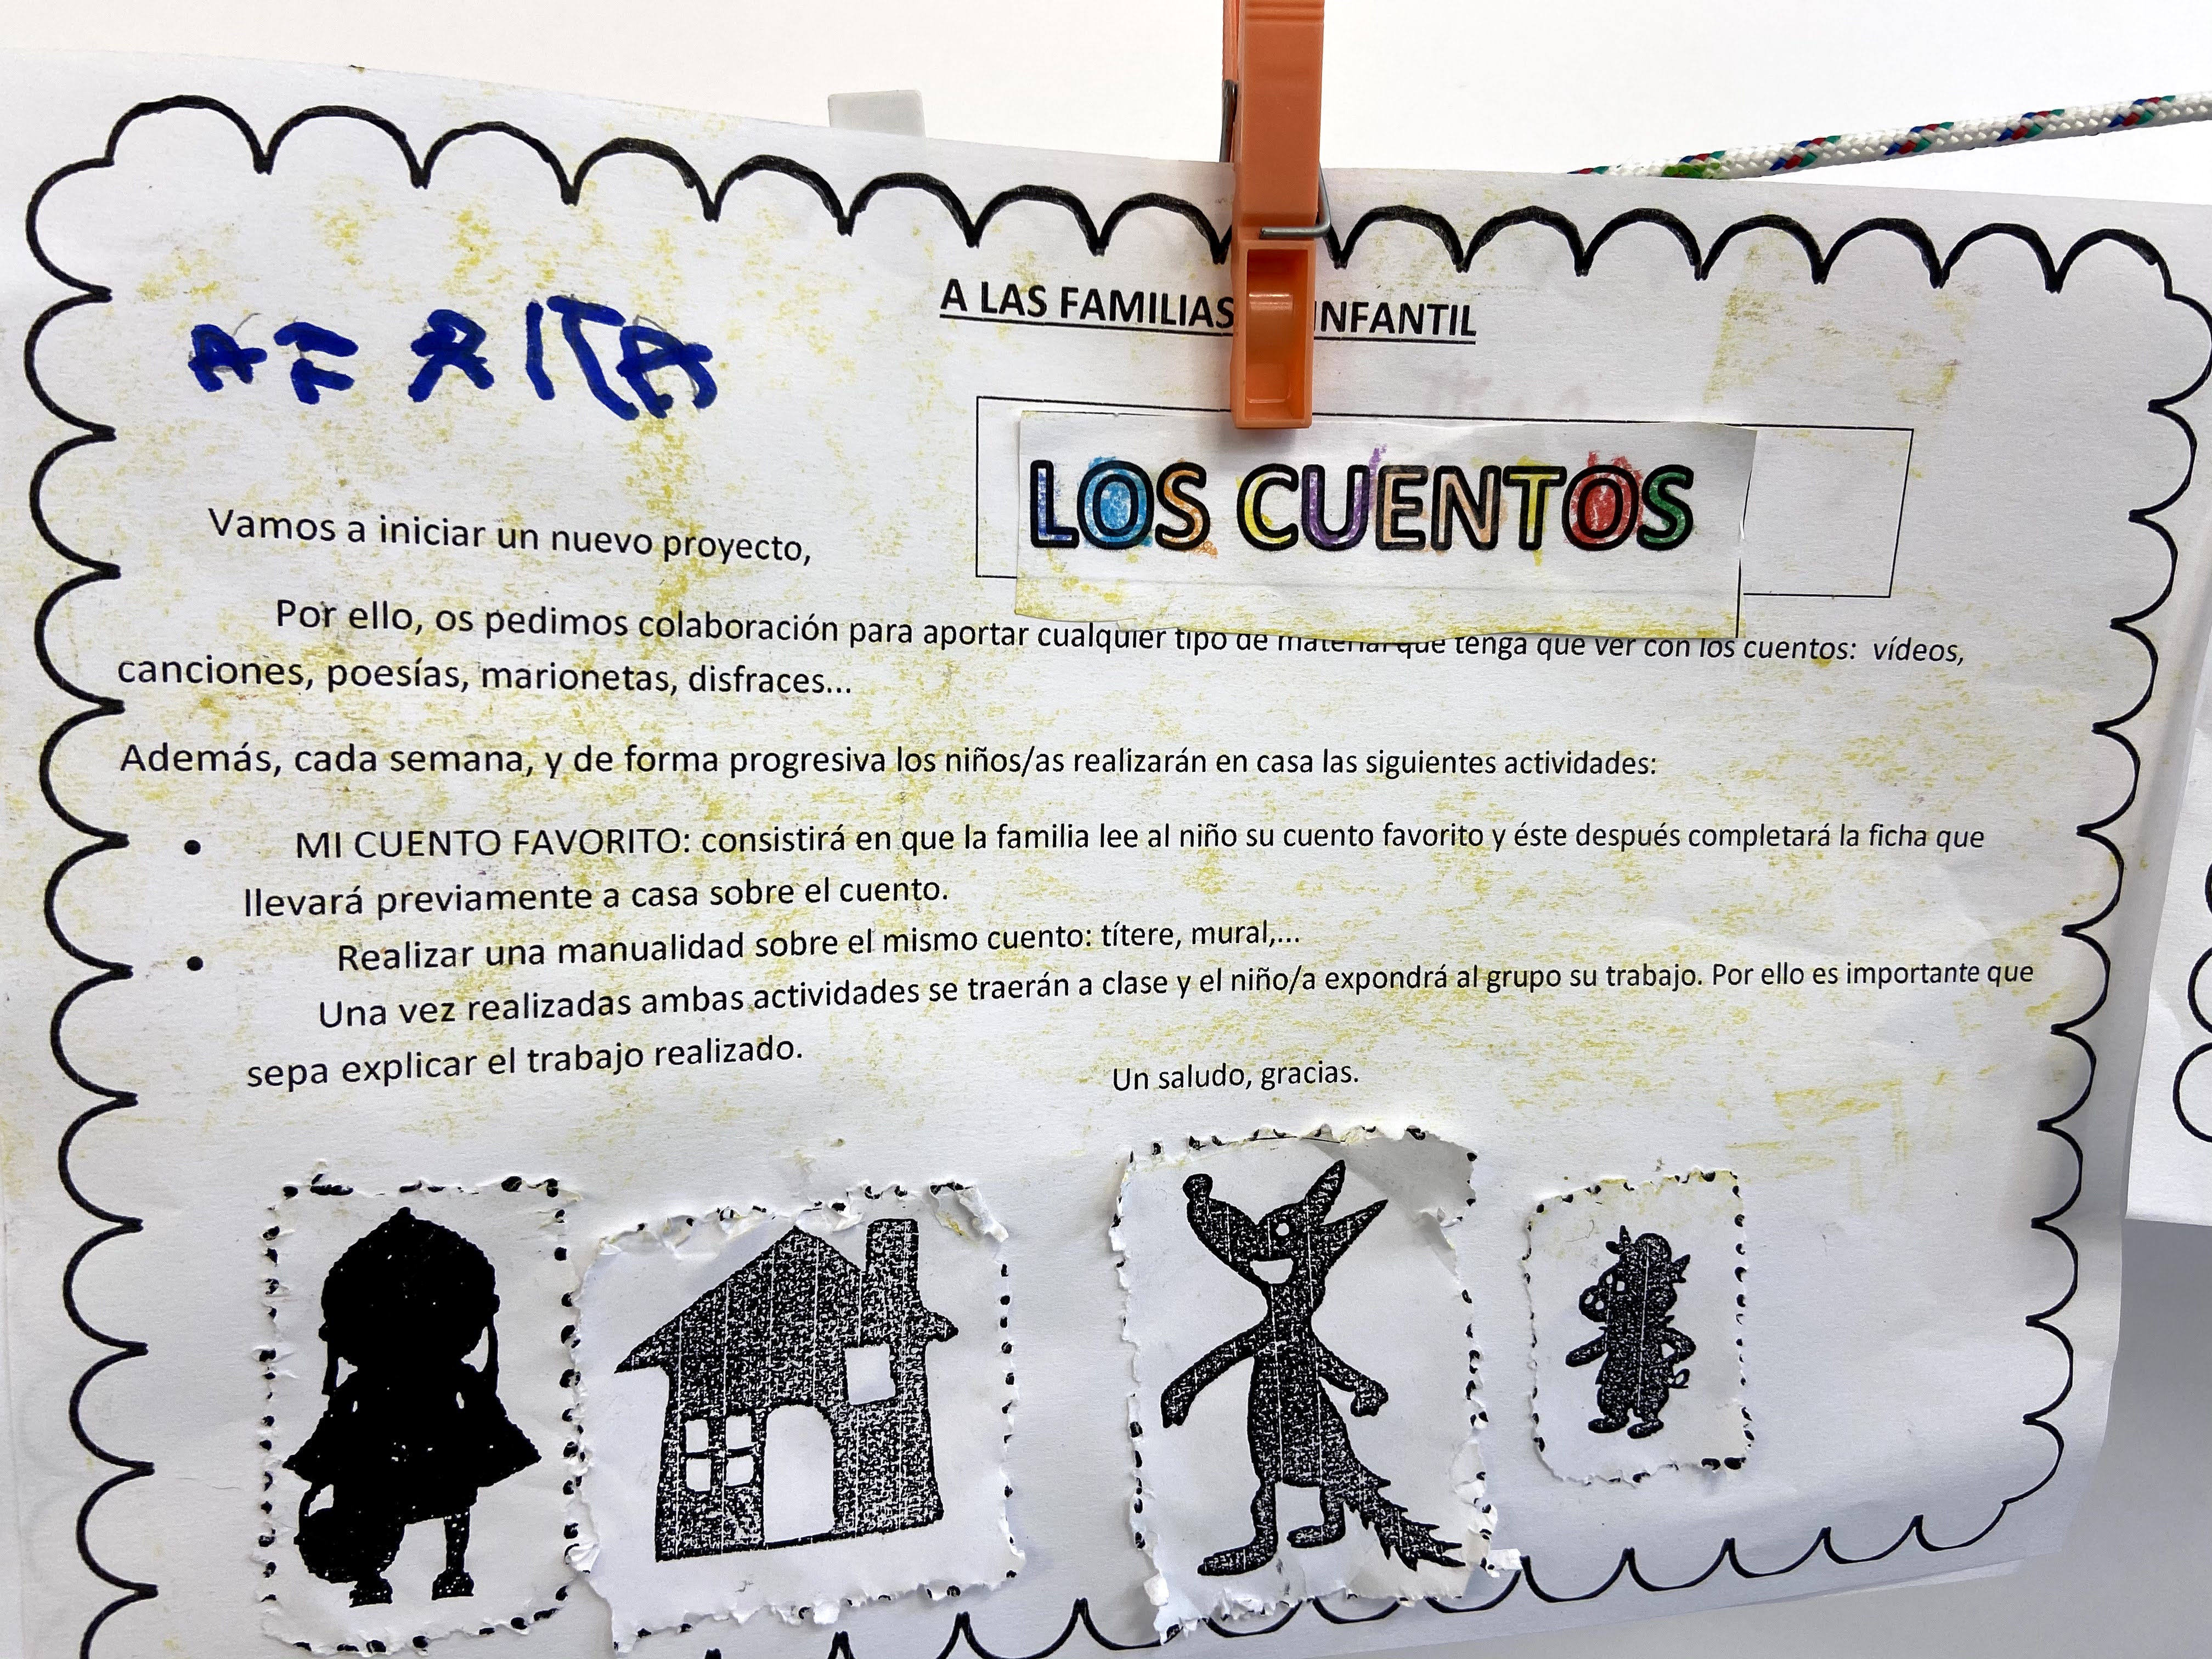 A LAS FAMILIAS INFANTIL
LOS CUENTOS
Vamos a iniciar un nuevo proyecto,
Por ello, os pedimos colaboración para aportar cualquier tipo de material que tenga que ver con los cuentos: vídeos,
canciones, poesías, marionetas, disfraces...
Además, cada semana, y de forma progresiva los niños/as realizarán en casa las siguientes actividades:
• MI CUENTO FAVORITO: consistirá en que la familia lee al niño su cuento favorito y éste después completará la ficha que
llevará previamente a casa sobre el cuento.
• Realizar una manualidad sobre el mismo cuento: títere, mural,...
Una vez realizadas ambas actividades se traerán a clase y el niño/a expondrá al grupo su trabajo. Por ello es importante que
sepa explicar el trabajo realizado.
Un saludo, gracias.